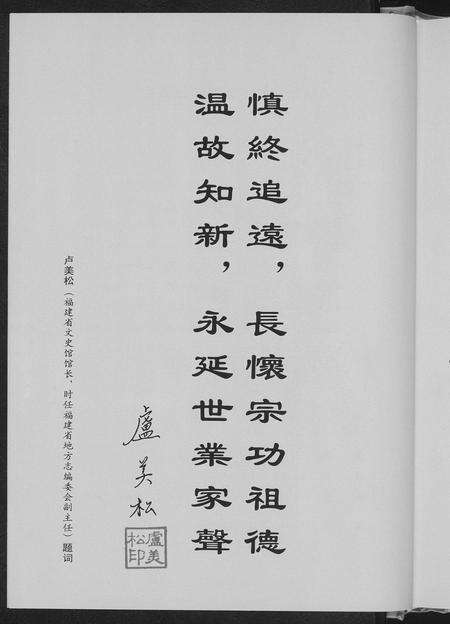 慎終追遠，長懷宗功祖德
温故知新，永延世業家聲
盧美松
盧美
松印
卢美松（福建省文史馆馆长、时任福建省地方志编委会副主任）题词